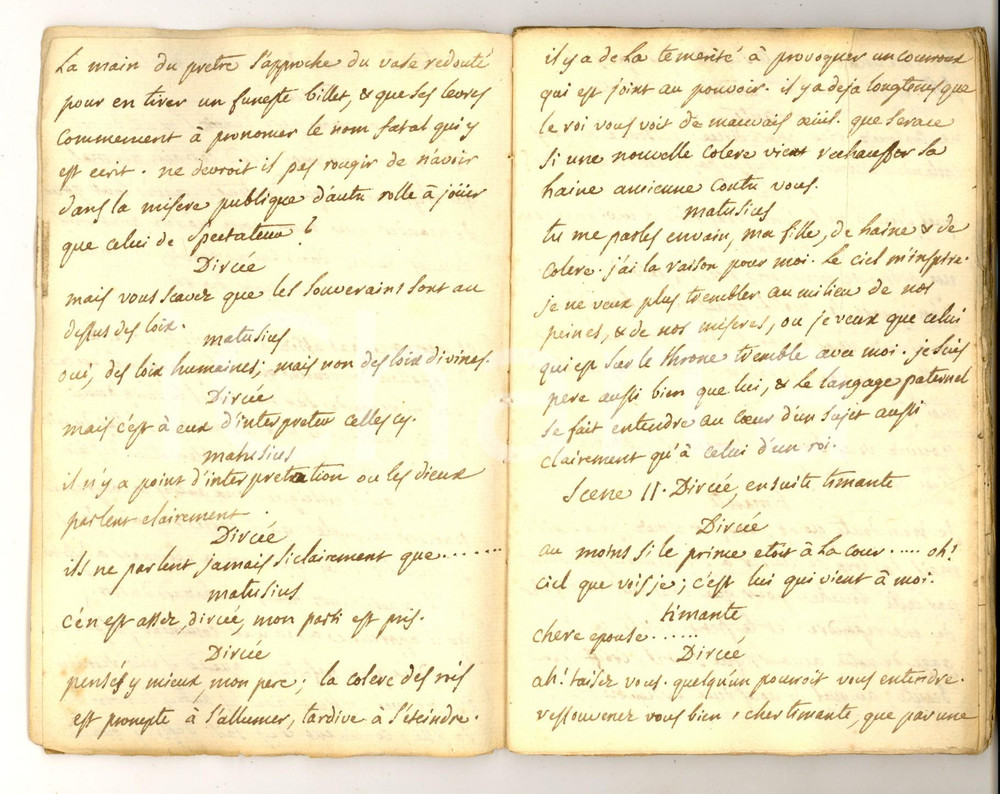 la main du pretre s'approche du vase redouté
pour en tirer un funeste billet, & que ses levres
commencent à prononcer le nom fatal qui y
est ecrit. ne devroit il pas rougir de n'avoir
dans la misere publique d'autre rolle à joüer
que celui de spectateur?
Dircée
mais vous scavez que les souverains sont au
dessus des loix.
matusius
oui, des loix humaines; mais non des loix divines.
Dircée
mais c'est à eux d'interpreter celles cy.
matusius
il n'y a point d'interpretation ou les dieux
parlent clairement.
Dircée
ils ne parlent jamais si clairement que.......
matusius
c'en est assez, dircée, mon parti est pris.
Dircée
pensés y mieux, mon pere; la colere des rois
est prompte à s'allumer, tardive à s'éteindre.
il y a de la temerité à provoquer un couroux
qui est joint au pouvoir. il y a deja longtems que
le roi vous voit de mauvais œüil. que serace
si une nouvelle colere vient rechauffer sa
haine ancienne contre vous.
matusius
tu me parles envain, ma fille, de haine & de
colere. j'ai la raison pour moi. le ciel m'inspire.
je ne veux plus trembler au milieu de nos
peines, & de nos miseres, ou je veux que celui
qui est sur le throne tremble avec moi. je suis
pere aussi bien que lui, & le langage paternel
se fait entendre au cœur d'un sujet aussi
clairement qu'à celui d'un roi.
Scene II. Dircée, ensuite timante
Dircée
au moins si le prince etoit à la cour..... oh!
ciel que vois je; c'est lui qui vient à moi.
timante
chere epouse......
Dircée
ah! taisez vous. quelqu'un pourroit vous entendre.
ressouvenez vous bien, cher timante, que par une